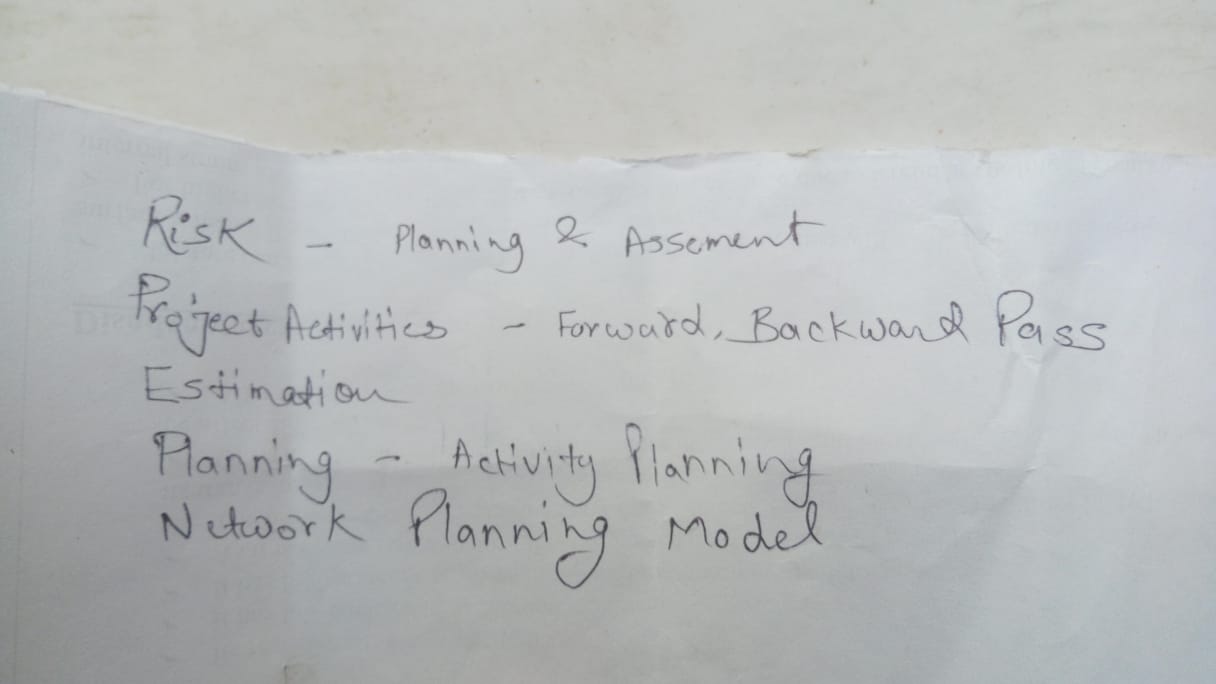 Risk - Planning & Assement
Project Activities - Forward, Backward Pass
Estimation
Planning - Activity Planning
Network Planning Model